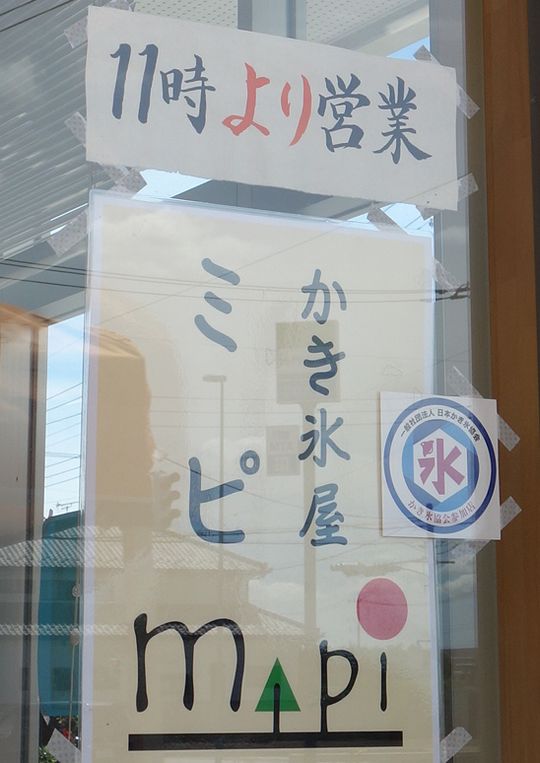 11時より営業
かき氷屋
ミピ
mipi
一般社団法人 日本かき氷協会
氷
かき氷協会参加店